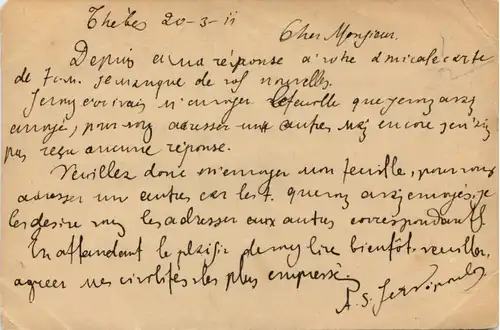 Thèbes 20-3-11
Cher Monsieur.
Depuis ma réponse a votre amicale carte
de je manque de vos nouvelles.
Je vous ecrivais m'envoyer la feuille que je vous avez
envoyé, pour vous adresser une autres mais encore je n'ai
pas reçu aucune réponse.
Veuillez donc m'envoyer mon feuille, pour vous
adresser un autres car les t. que vous avez envoyés je
les desire vous les adresser aux autres correspondants
En attendant le plaisir de vous lire bientôt veuillez
agreer mes civilités les plus empressé.
A. S.